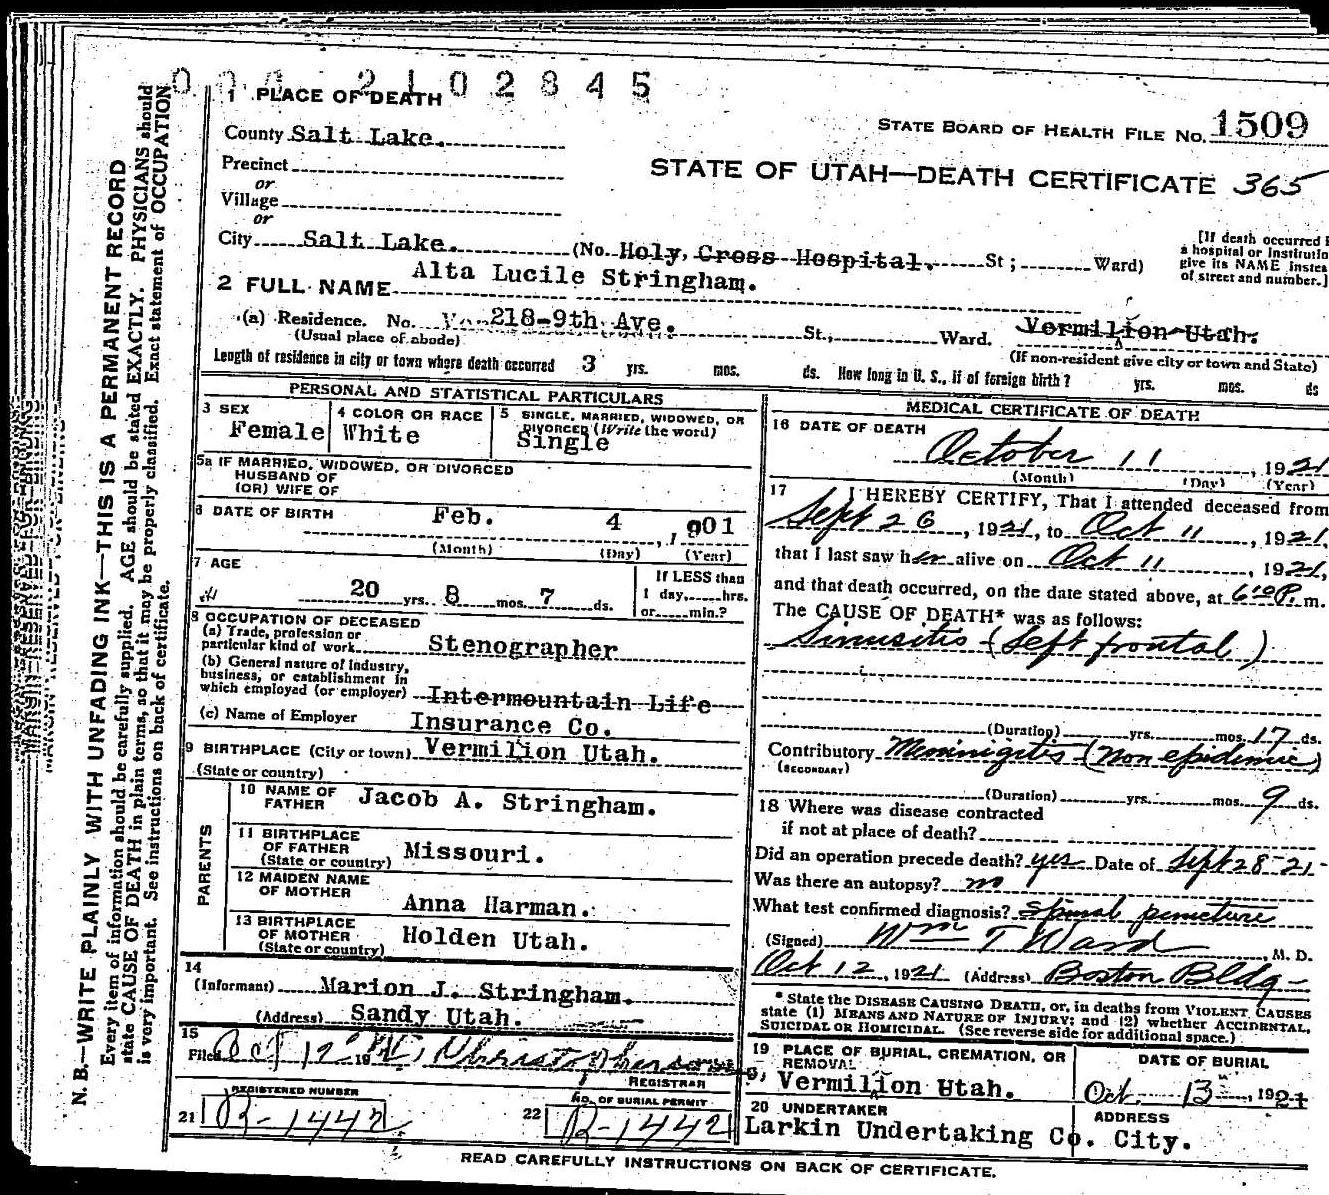 004 2102845
1 PLACE OF DEATH
STATE BOARD OF HEALTH FILE NO. 1509
County Salt Lake.
STATE OF UTAH—DEATH CERTIFICATE 365
Precinct
or
Village
or
City Salt Lake. (No. Holy Cross Hospital. St; Ward)
[If death occurred
a hospital or institutio
give its NAME instea
of street and number.]
2 FULL NAME Alta Lucile Stringham.
(a) Residence. No. 218-9th Ave. St., Ward. Vermilion Utah.
(Usual place of abode)
(If non-resident give city or town and State)
Length of residence in city or town where death occurred 3 yrs. mos. ds. How long in U. S., if of foreign birth? yrs. mos. ds
PERSONAL AND STATISTICAL PARTICULARS
3 SEX
Female
4 COLOR OR RACE
White
5 SINGLE, MARRIED, WIDOWED, OR
DIVORCED (Write the word)
Single
5a IF MARRIED, WIDOWED, OR DIVORCED
HUSBAND OF
(OR) WIFE OF
6 DATE OF BIRTH Feb. 4, 1901
(Month) (Day) (Year)
7 AGE
20 yrs. 8 mos. 7 ds.
If LESS than
1 day, hrs.
or min.?
8 OCCUPATION OF DECEASED
(a) Trade, profession or
particular kind of work Stenographer
(b) General nature of industry,
business, or establishment in
which employed (or employer) Intermountain Life
(c) Name of Employer Insurance Co.
9 BIRTHPLACE (City or town) Vermilion Utah.
(State or country)
PARENTS
10 NAME OF
FATHER Jacob A. Stringham.
11 BIRTHPLACE
OF FATHER
(State or country) Missouri.
12 MAIDEN NAME
OF MOTHER
Anna Harman.
13 BIRTHPLACE
OF MOTHER
(State or country) Holden Utah.
14
(Informant) Marion J. Stringham.
(Address) Sandy Utah.
15
Filed Oct 12 19
REGISTRAR
REGISTERED NUMBER
21 R-1442
NO. OF BURIAL PERMIT
22 R-1442
MEDICAL CERTIFICATE OF DEATH
16 DATE OF DEATH
October 11, 1921
(Month) (Day) (Year)
17 I HEREBY CERTIFY, That I attended deceased from
Sept 26, 1921, to Oct 11, 1921,
that I last saw her alive on Oct 11, 1921,
and that death occurred, on the date stated above, at 6 10 P. m.
The CAUSE OF DEATH* was as follows:
Sinusitis (Left frontal)
(Duration) yrs. mos. 17 ds.
Contributory Meninigitis (non epidemic)
(SECONDARY)
(Duration) yrs. mos. 9 ds.
18 Where was disease contracted
if not at place of death?
Did an operation precede death? yes Date of Sept 28-21-
Was there an autopsy? no
What test confirmed diagnosis? Spinal puncture
(Signed) Wm T Ward, M. D.
Oct 12, 1921 (Address) Boston Bldg-
* State the DISEASE CAUSING DEATH, or, in deaths from VIOLENT CAUSES
state (1) MEANS AND NATURE OF INJURY; and (2) whether ACCIDENTAL,
SUICIDAL OR HOMICIDAL. (See reverse side for additional space.)
19 PLACE OF BURIAL, CREMATION, OR
REMOVAL
Vermilion Utah.
DATE OF BURIAL
Oct. 13, 1921
20 UNDERTAKER
Larkin Undertaking Co.
ADDRESS
City.
READ CAREFULLY INSTRUCTIONS ON BACK OF CERTIFICATE.
N. B.—WRITE PLAINLY WITH UNFADING INK—THIS IS A PERMANENT RECORD
Every item of information should be carefully supplied. AGE should be stated EXACTLY. PHYSICIANS should
state CAUSE OF DEATH in plain terms, so that it may be properly classified. Exact statement of OCCUPATION
is very important. See instructions on back of certificate.